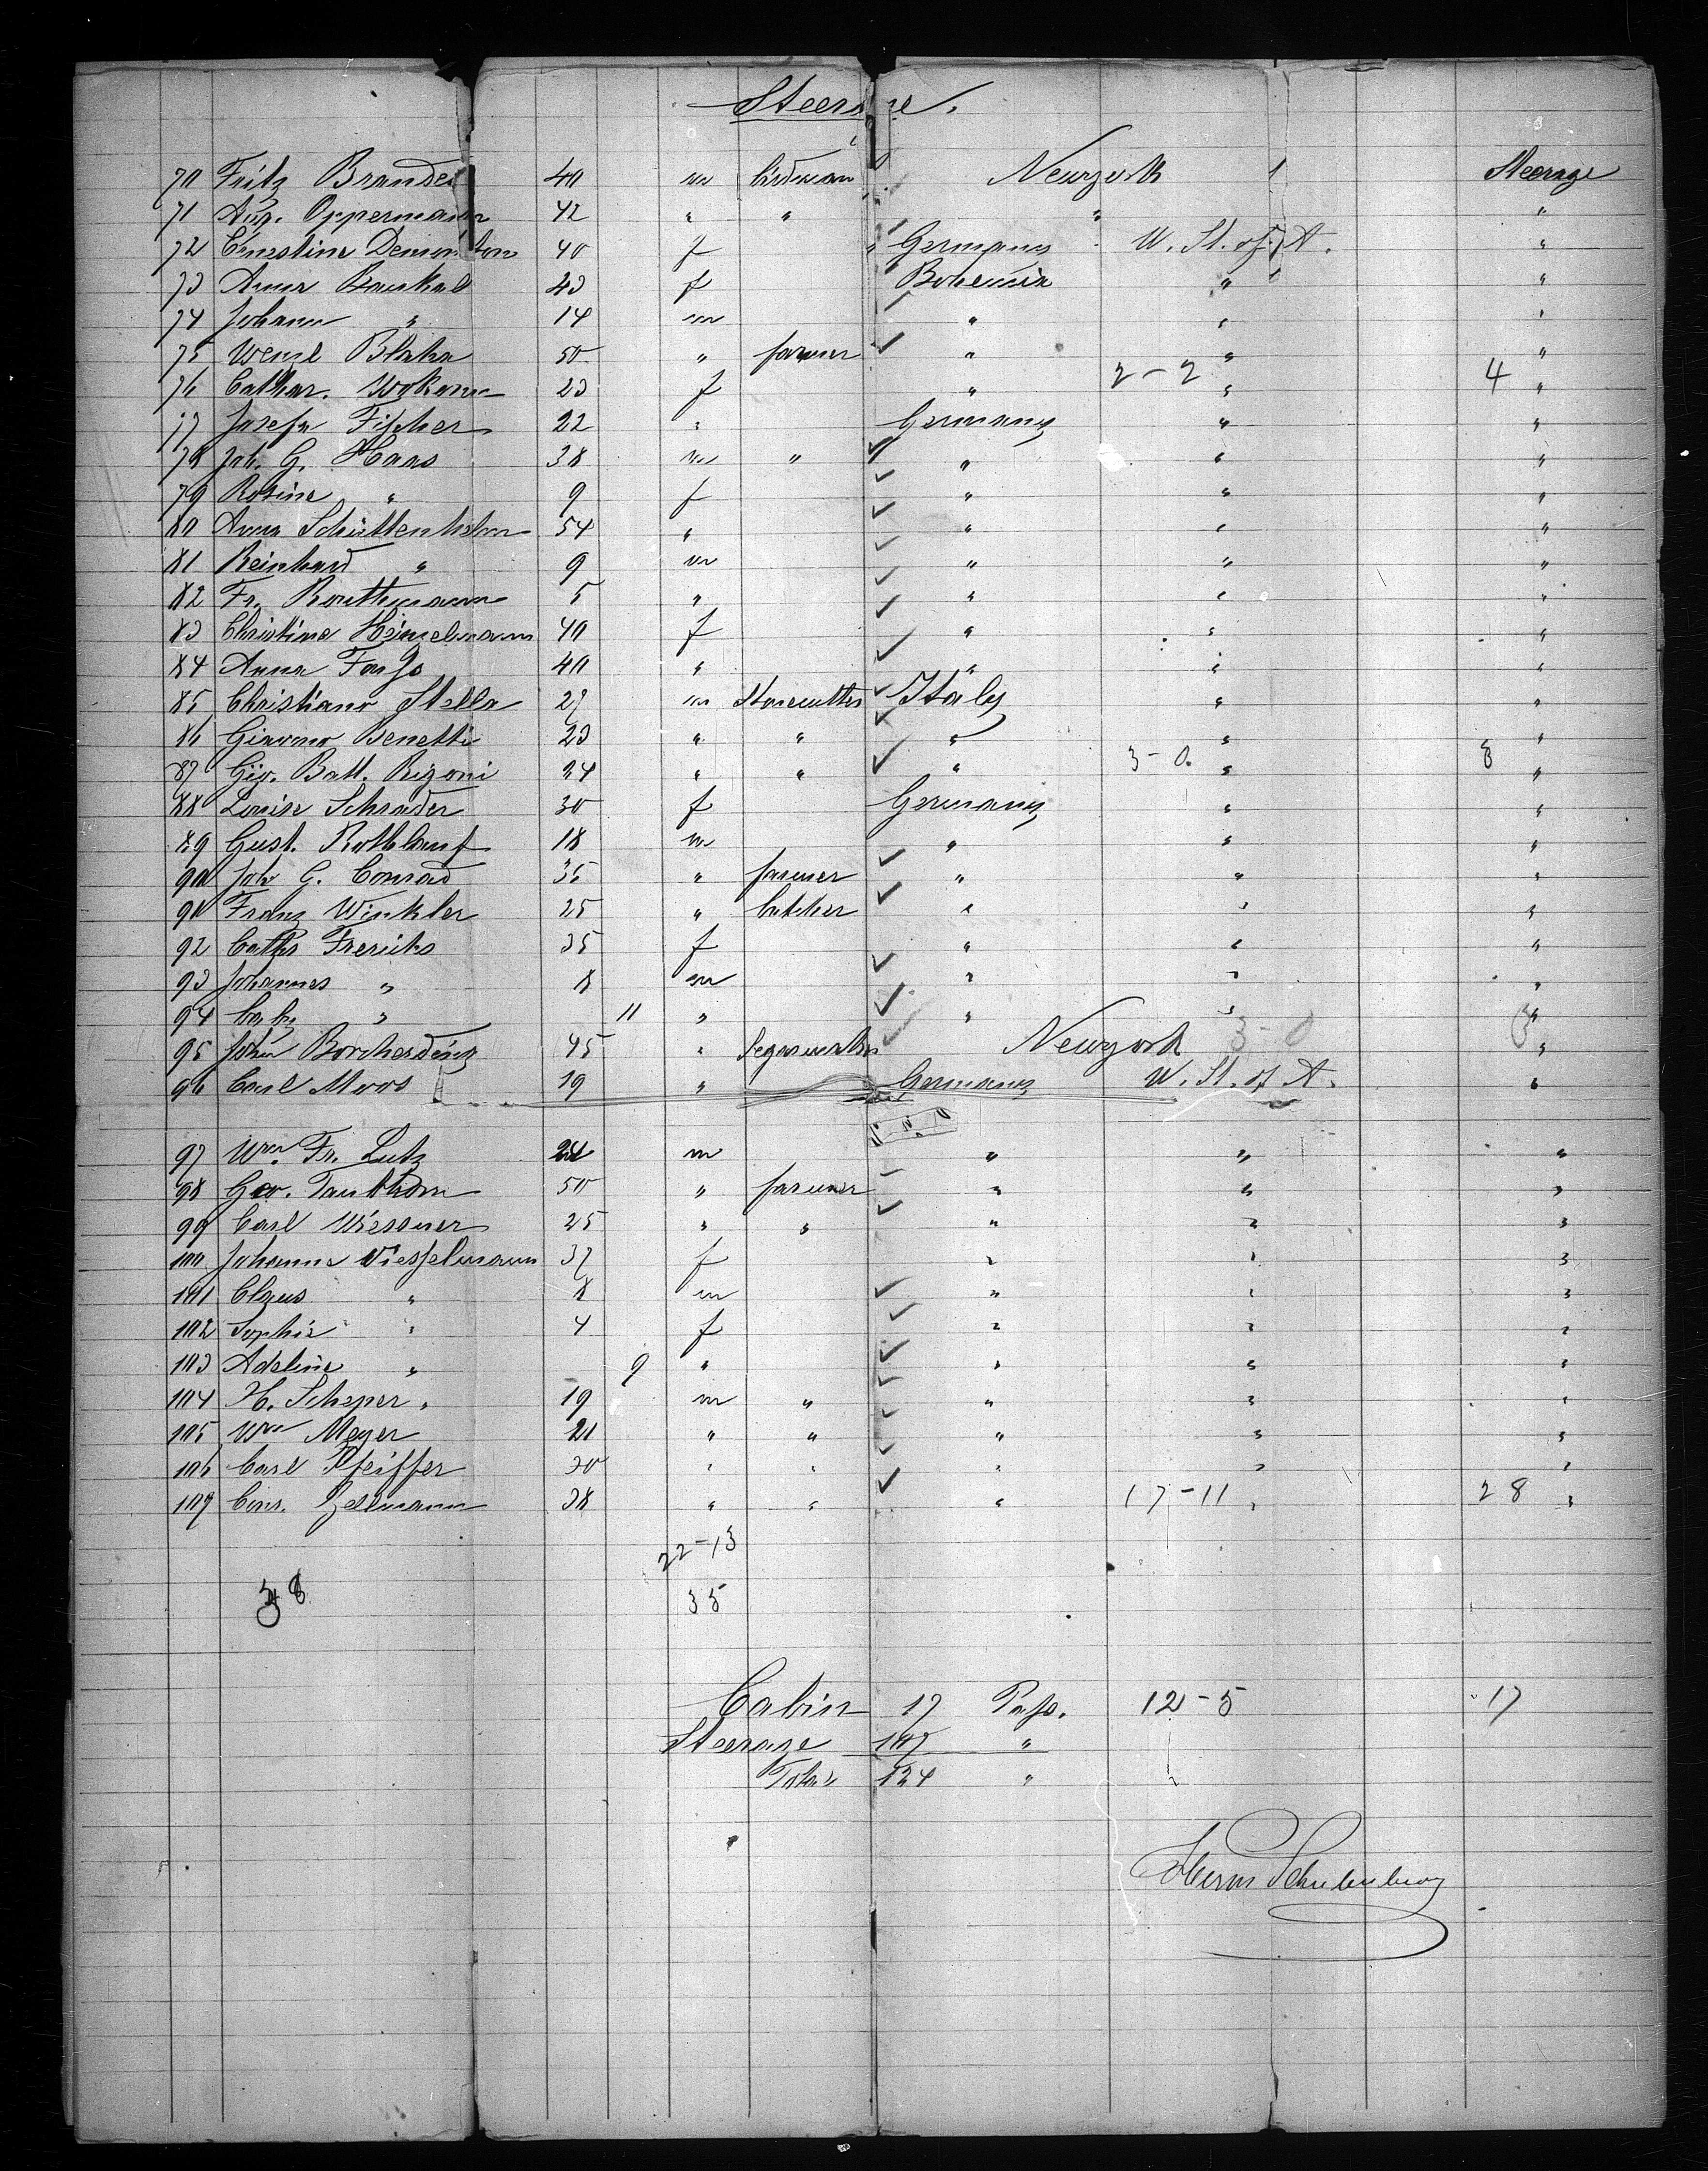 Steerage.
70 Fritz Brandes 40 m birdman Newyork 1 Steerage
71 Aug. Oppermann 42 " " " "
72 Ernestine Demonton 40 f " Germany U. St. of A. "
73 Anna Baukal 43 f Bohemia " "
74 Johann " 14 m " " "
75 Wenzl Blaha 50 " farmer " " "
76 Cathar. Wokann 23 f " 2-2 " 4 "
77 Josefa Fischer 22 " Germany " "
78 Joh. G. Haas 38 m " " " "
79 Rosine " 9 f " " "
80 Anna Schüttenhelm 54 " " " "
81 Reinhard " 9 m " " "
82 Fr. Routhmann 5 " " " "
83 Christine Heinzelmann 40 f " " "
84 Anna Fargo 40 " " " "
85 Christiano Stella 27 m Stonecutter Italy " "
86 Giacomo Benetti 23 " " " " "
87 Gio. Batt. Rizoni 24 " " " 3-0. " 8 "
88 Louise Schrader 30 f Germany " "
89 Gust. Rothlauf 18 m " " "
90 Joh G. Conrad 35 " farmer " " "
91 Franz Winkler 25 " butcher " " "
92 Cathr Frerichs 35 f " " "
93 Johannes " 8 m " " "
94 baby " 11 " " " "
95 John Borcherding 45 " Segarmaker Newyork 3-0 3 "
96 Carl Moos 19 " Germany U. St. of A. "
97 Wm. Fr. Lutz 24 m " " "
98 Geo. 50 " farmer " " "
99 Carl Wiessner 25 " " " " "
100 Johanne Wiesselmann 37 f " " "
101 Claus " 8 m " " "
102 Sophie " 4 f " " "
103 Adeline " 9 " " " "
104 H. Scheper " 19 m " " " "
105 Wm Meyer 21 " " " " "
106 Carl Pfeiffer 30 " " " " "
107 Conr. Zellmann 38 " " " 17-11 " 28 "
22-13
38 35
Cabin 17 Pass. 12-5 17
Steerage 107 "
Total 124 "
Herm Schulenburg